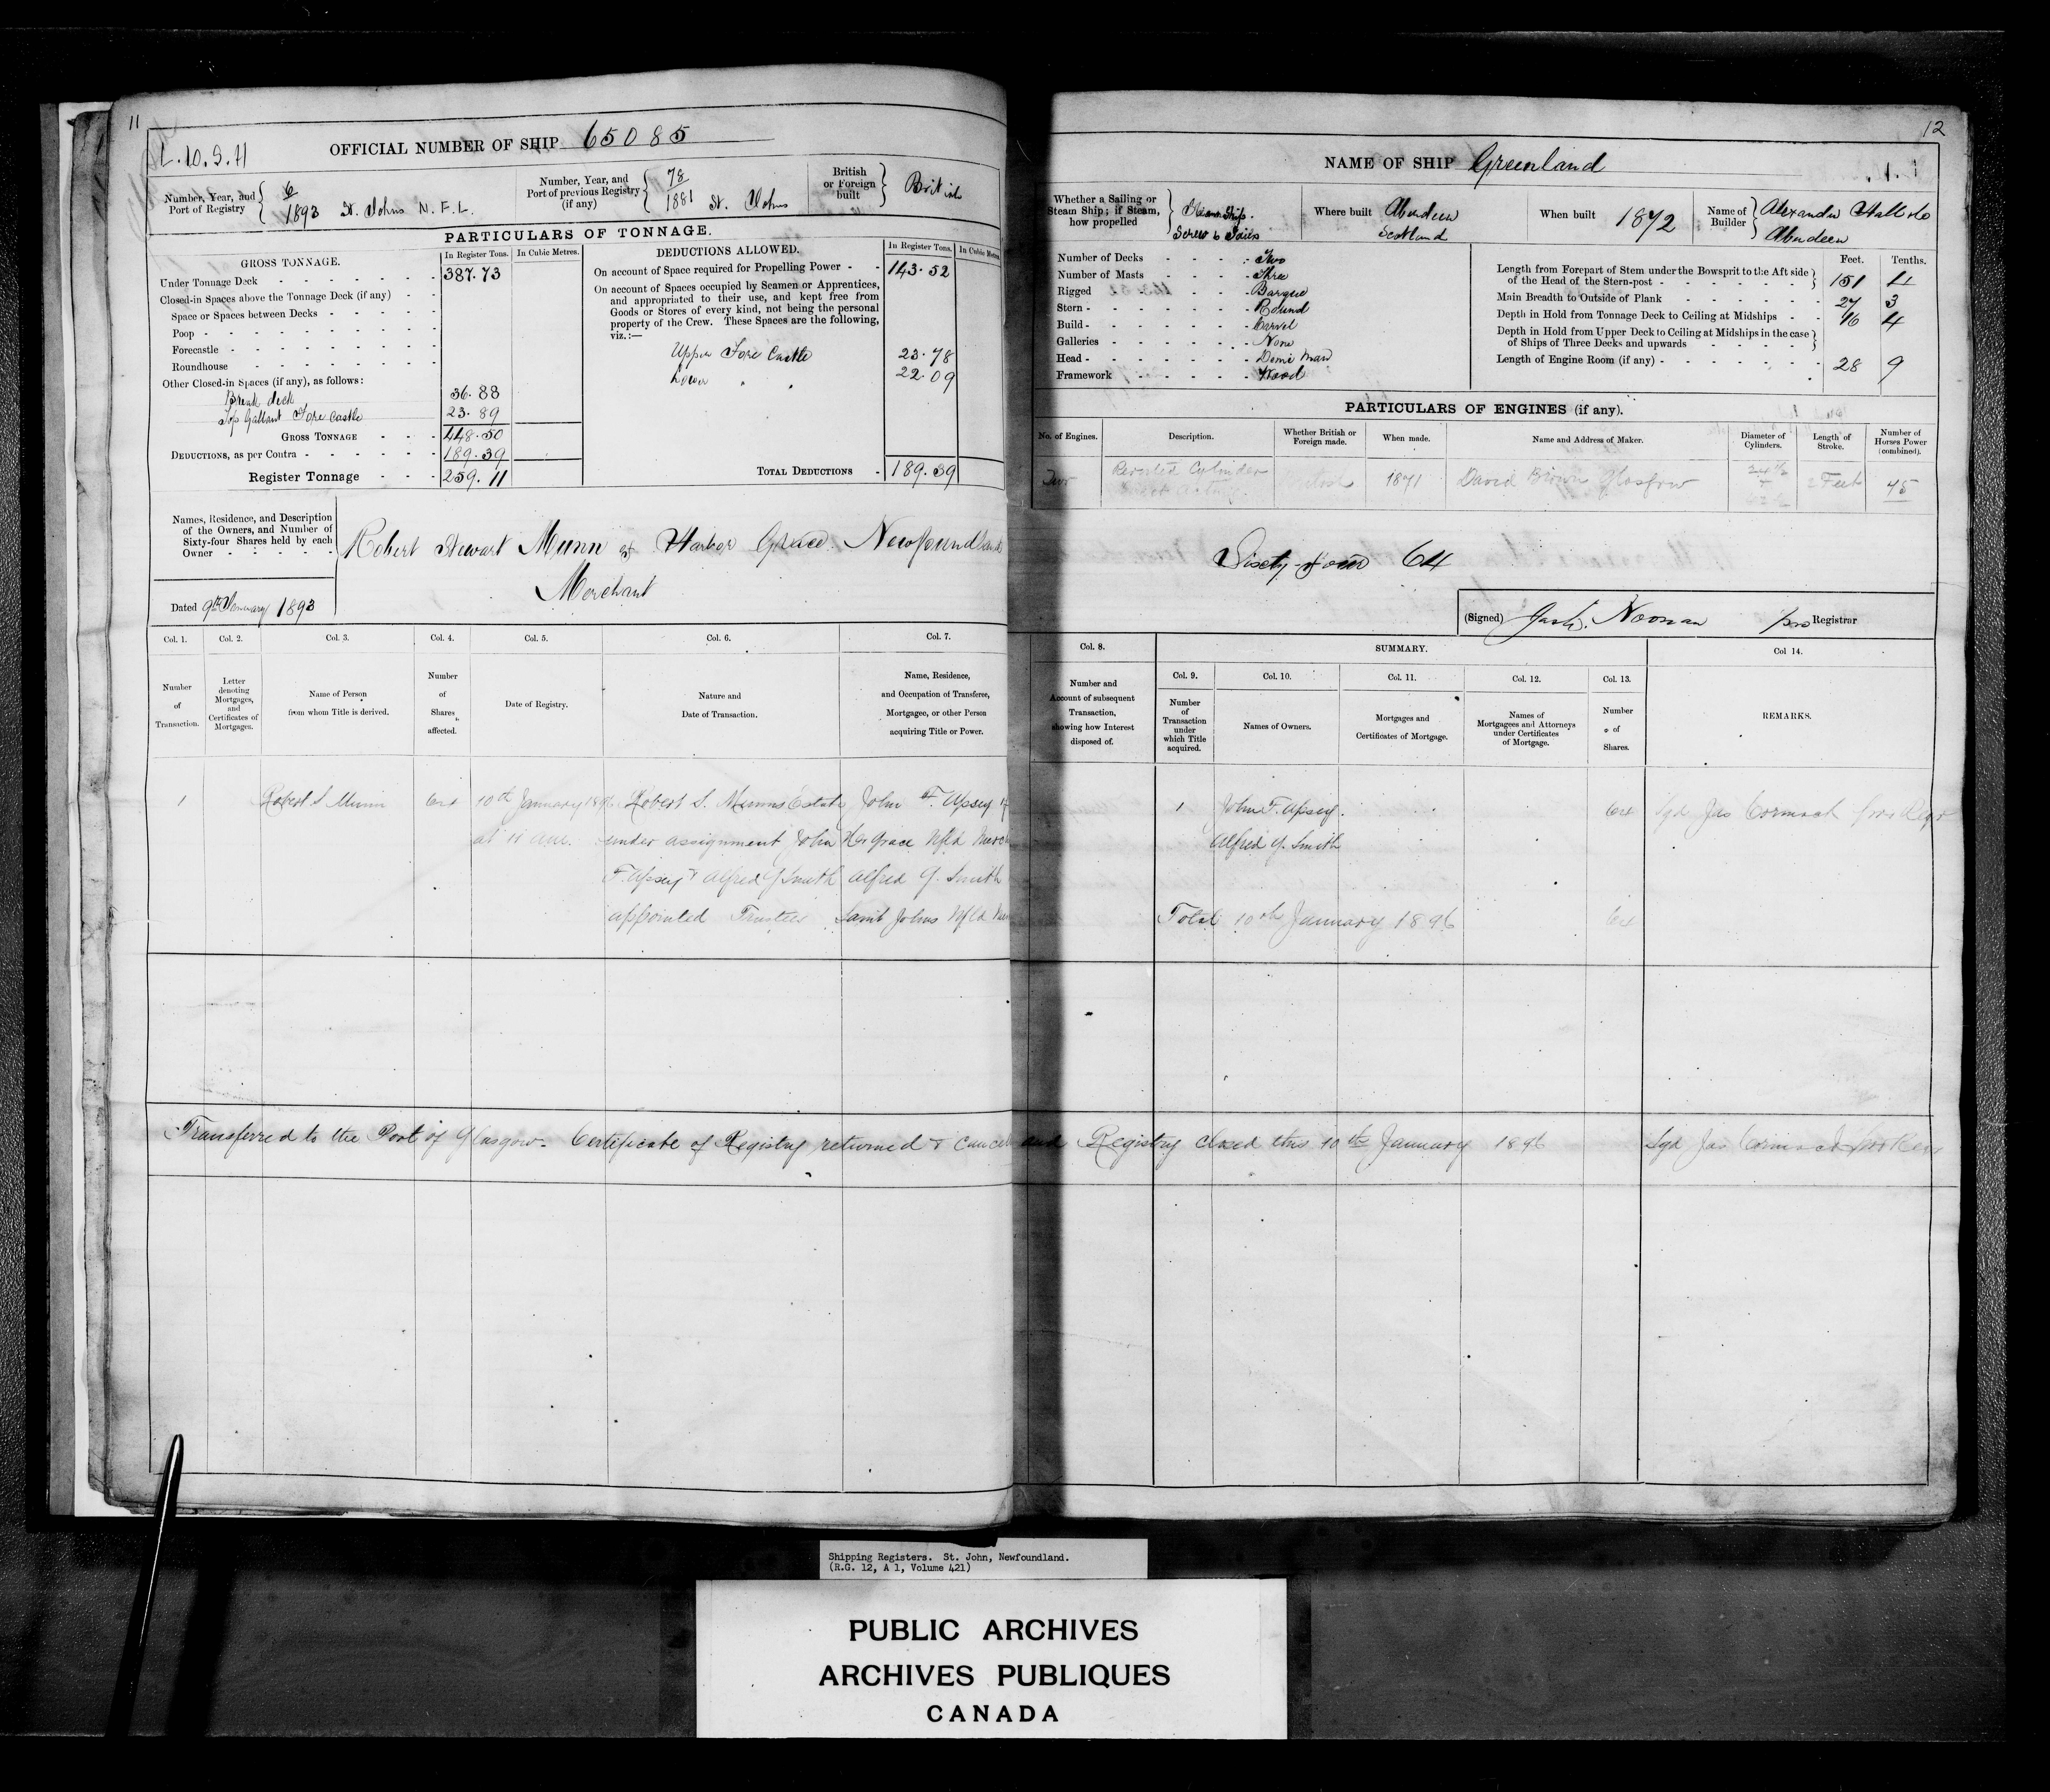 11
OFFICIAL NUMBER OF SHIP 65085
Number, Year, and Port of Registry 6/1893 St. Johns N.F.L.
Number, Year, and Port of previous Registry (if any) 78/1881 St. Johns
British or Foreign built British
PARTICULARS OF TONNAGE.
GROSS TONNAGE.
In Register Tons. In Cubic Metres.
Under Tonnage Deck 387.73
Closed-in Spaces above the Tonnage Deck (if any)
Space or Spaces between Decks
Poop
Forecastle
Roundhouse
Other Closed-in Spaces (if any), as follows:
Break deck 36.88
Top Gallant Fore Castle 23.89
GROSS TONNAGE 448.50
DEDUCTIONS, as per Contra 189.39
Register Tonnage 259.11
DEDUCTIONS ALLOWED.
In Register Tons. In Cubic Metres.
On account of Space required for Propelling Power 143.52
On account of Spaces occupied by Seamen or Apprentices,
and appropriated to their use, and kept free from
Goods or Stores of every kind, not being the personal
property of the Crew. These Spaces are the following,
viz.:—
Upper Fore Castle 23.78
Lower " " 22.09
TOTAL DEDUCTIONS 189.39
Names, Residence, and Description
of the Owners, and Number of
Sixty-four Shares held by each
Owner
Robert Stewart Munn of Harbor Grace Newfoundland
Merchant
Dated 9th January 1893
Col. 1. Col. 2. Col. 3. Col. 4. Col. 5. Col. 6. Col. 7.
Number of Transaction.
Letter denoting Mortgages, and Certificates of Mortgages.
Name of Person from whom Title is derived.
Number of Shares affected.
Date of Registry.
Nature and Date of Transaction.
Name, Residence, and Occupation of Transferee, Mortgagee, or other Person acquiring Title or Power.
1 Robert S Munn 64 10th January 1896 Robert S. Munns Estate John F. Apsey of
at 11 am. under assignment John Hr Grace Nfld
F. Apsey & Alfred G Smith Alfred G. Smith
appointed Trustees Saint Johns Nfld
Transferred to the Port of Glasgow. Certificate of Registry returned &
12
NAME OF SHIP Greenland
Whether a Sailing or Steam Ship; if Steam, how propelled Steam Ship. Screw & Sails
Where built Aberdeen Scotland
When built 1872
Name of Builder Alexander Hall & Co Aberdeen
Number of Decks Two
Number of Masts Three
Rigged Barque
Stern Round
Build Carvel
Galleries None
Head Demi Man
Framework Wood
Feet. Tenths.
Length from Forepart of Stem under the Bowsprit to the Aft side of the Head of the Stern-post 151 4
Main Breadth to Outside of Plank 27 3
Depth in Hold from Tonnage Deck to Ceiling at Midships 16 4
Depth in Hold from Upper Deck to Ceiling at Midships in the case of Ships of Three Decks and upwards
Length of Engine Room (if any) 28 9
PARTICULARS OF ENGINES (if any).
No. of Engines. Description. Whether British or Foreign made. When made. Name and Address of Maker. Diameter of Cylinders. Length of Stroke. Number of Horses Power (combined).
Two Cylinder Direct Acting British 1871 David Brown Glasgow 2 Feet 75
Sixty-four 64
(Signed) Noonan pro Registrar
Col. 8. SUMMARY. Col 14.
Number and Account of subsequent Transaction, showing how Interest disposed of.
Col. 9. Col. 10. Col. 11. Col. 12. Col. 13.
Number of Transaction under which Title acquired.
Names of Owners.
Mortgages and Certificates of Mortgage.
Names of Mortgagees and Attorneys under Certificates of Mortgage.
Number of Shares.
REMARKS.
1 John F. Apsey. 64 Sgd Jas Cormack pro Regr
Alfred G. Smith
Total 10th January 1896 64
and Registry closed this 10th January 1896 Sgd Jas Cormack pro Regr
Shipping Registers. St. John, Newfoundland.
(R.G. 12, A 1, Volume 421)
PUBLIC ARCHIVES
ARCHIVES PUBLIQUES
CANADA